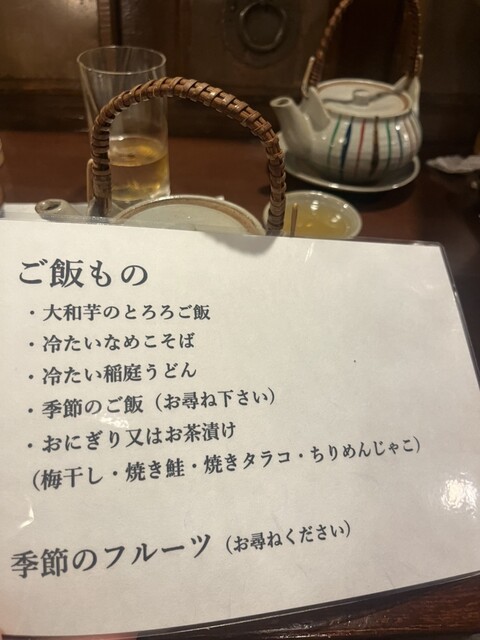 ご飯もの
・大和芋のとろろご飯
・冷たいなめこそば
・冷たい稲庭うどん
・季節のご飯（お尋ね下さい）
・おにぎり又はお茶漬け
（梅干し・焼き鮭・焼きタラコ・ちりめんじゃこ）
季節のフルーツ（お尋ねください）